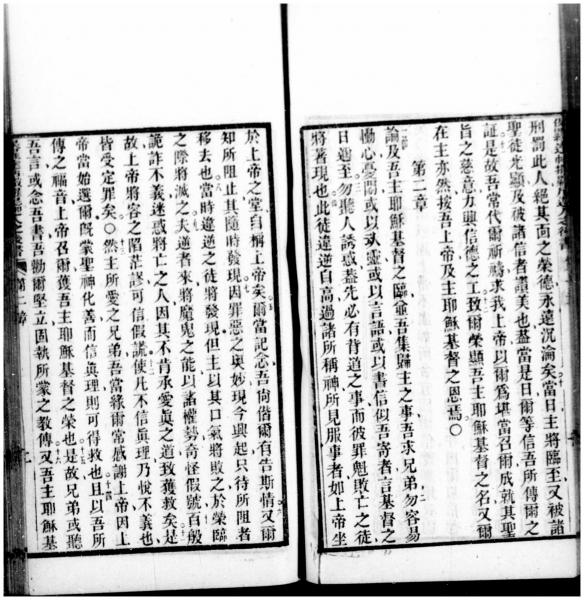 刑罰此人絕其面之榮德永遠沉淪矣當日主將臨至又被諸
聖徒光顯及被諸信者讚美也蓋當是日爾等信吾所傳爾之
証是故吾常代爾祈禱求我上帝以爾爲堪當召爾成就其聖
旨之慈意力興信德之工致爾榮顯吾主耶穌基督之名又爾
在主亦然按吾上帝及主耶穌基督之恩焉○
第二章
論及吾主耶穌基督之臨並吾集歸主之事吾求兄弟勿容易
慟心憂悶或以風靈或以言語或以書信似吾寄者言基督之
日趨至勿聽人誘惑蓋先必有背道之事而彼罪魁敗亡之徒
將著現也此徒違逆自高過諸所稱神所見服事者如上帝坐
於上帝之堂自稱上帝矣爾當記念吾尙偕爾有告斯情又爾
知所阻止其隨時發現因罪惡之奧妙現今興起只待所阻者
移去也當時違逆之徒將發現但主以其口氣將敗之於榮臨
之際將滅之夫逆者來將魔鬼之能以諸權勢奇怪假號百般
詭詐不義迷惑將亡之人因其不肯承愛眞之道致獲救矣是
故上帝將容之陷茫謬可信假謊使凡不信眞理乃悅不義也
皆受定罪矣○然主所愛之兄弟吾當緣爾常感謝上帝因上
帝當始選爾旣蒙聖神化善而信眞理則可得救也且以吾所
傳之福音上帝召爾獲吾主耶穌基督之榮也是故兄弟或聽
吾言或念吾書吾勸爾堅立固執所蒙之教傳又吾主耶穌基